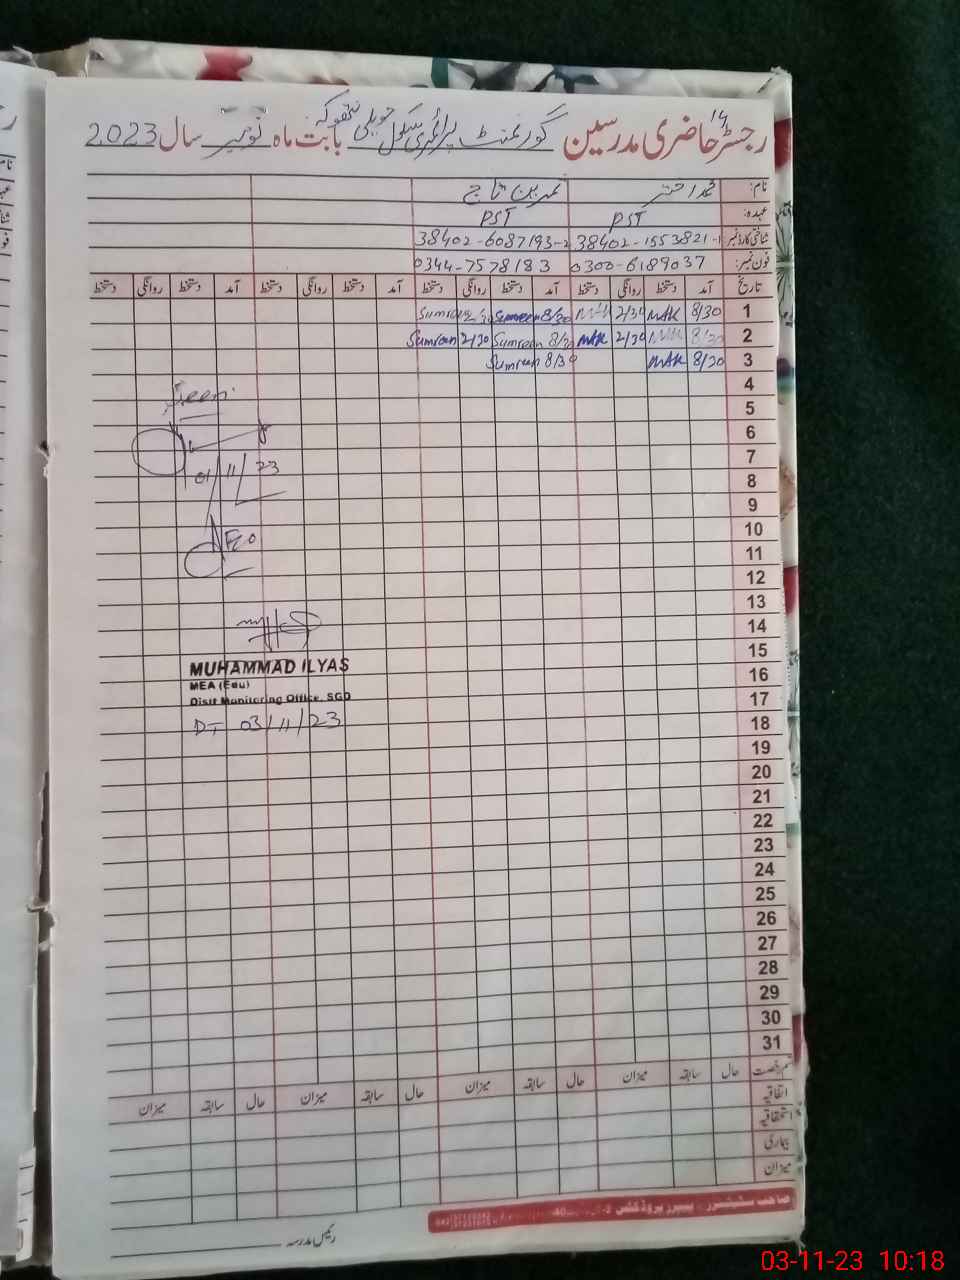 14
رجسٹر حاضری مدرسین گورنمنٹ پرائمری سکول حویلی بابت ماہ نومبر سال 2023
نام: محمد اختر ثمرین تاج
عہدہ: PST PST
شناختی کارڈ نمبر 38402-1553821-1 38402-6087193-2
فون نمبر: 0300-6189037 0344-7578183
تاریخ آمد دستخط روانگی دستخط آمد دستخط روانگی دستخط آمد دستخط روانگی دستخط آمد دستخط روانگی دستخط
1 8/30 MAK 2/30 MAK 8/30 Sumreen 2/30 Sumreen
2 8/30 MAK 2/30 MAK 8/30 Sumreen 2/30 Sumreen
3 8/30 MAK 8/30 Sumreen
4
5
6
7
01/11/23
8
9
10
11
12
13
14
15
MUHAMMAD ILYAS
16
MEA (Edu)
17
Distt Monitoring Office, SGD
18
DT 03/11/23
19
20
21
22
23
24
25
26
27
28
29
30
31
قسم رخصت حال سابقہ میزان حال سابقہ میزان حال سابقہ میزان حال سابقہ میزان
اتفاقیہ
استحقاقیہ
بیماری
میزان
رئیس مدرسہ
03-11-23 10:18